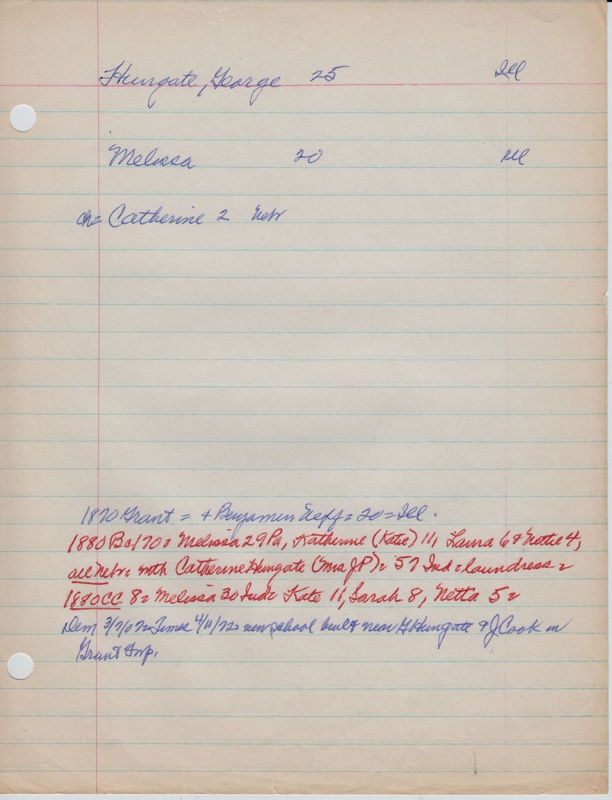 Hungate, George 25 Ill
Melissa 20 Ill
ch= Catherine 2 Nebr
1870 Grant = + Benjamin = 20 = Ill.
1880 Ba170 = Melissa 29 Pa, Katherine (Kate) 11, Laura 6 & Nettie 4,
all Nebr = with Catherine Hungate (Mrs J P) = 57 Ind = laundress =
1880CC 8 = Melissa 30 Ind = Kate 11, Sarah 8, Netta 5 =
Dem Times 4/11/72 = new school built near G Hungate & J Cook in
Grant Twp.